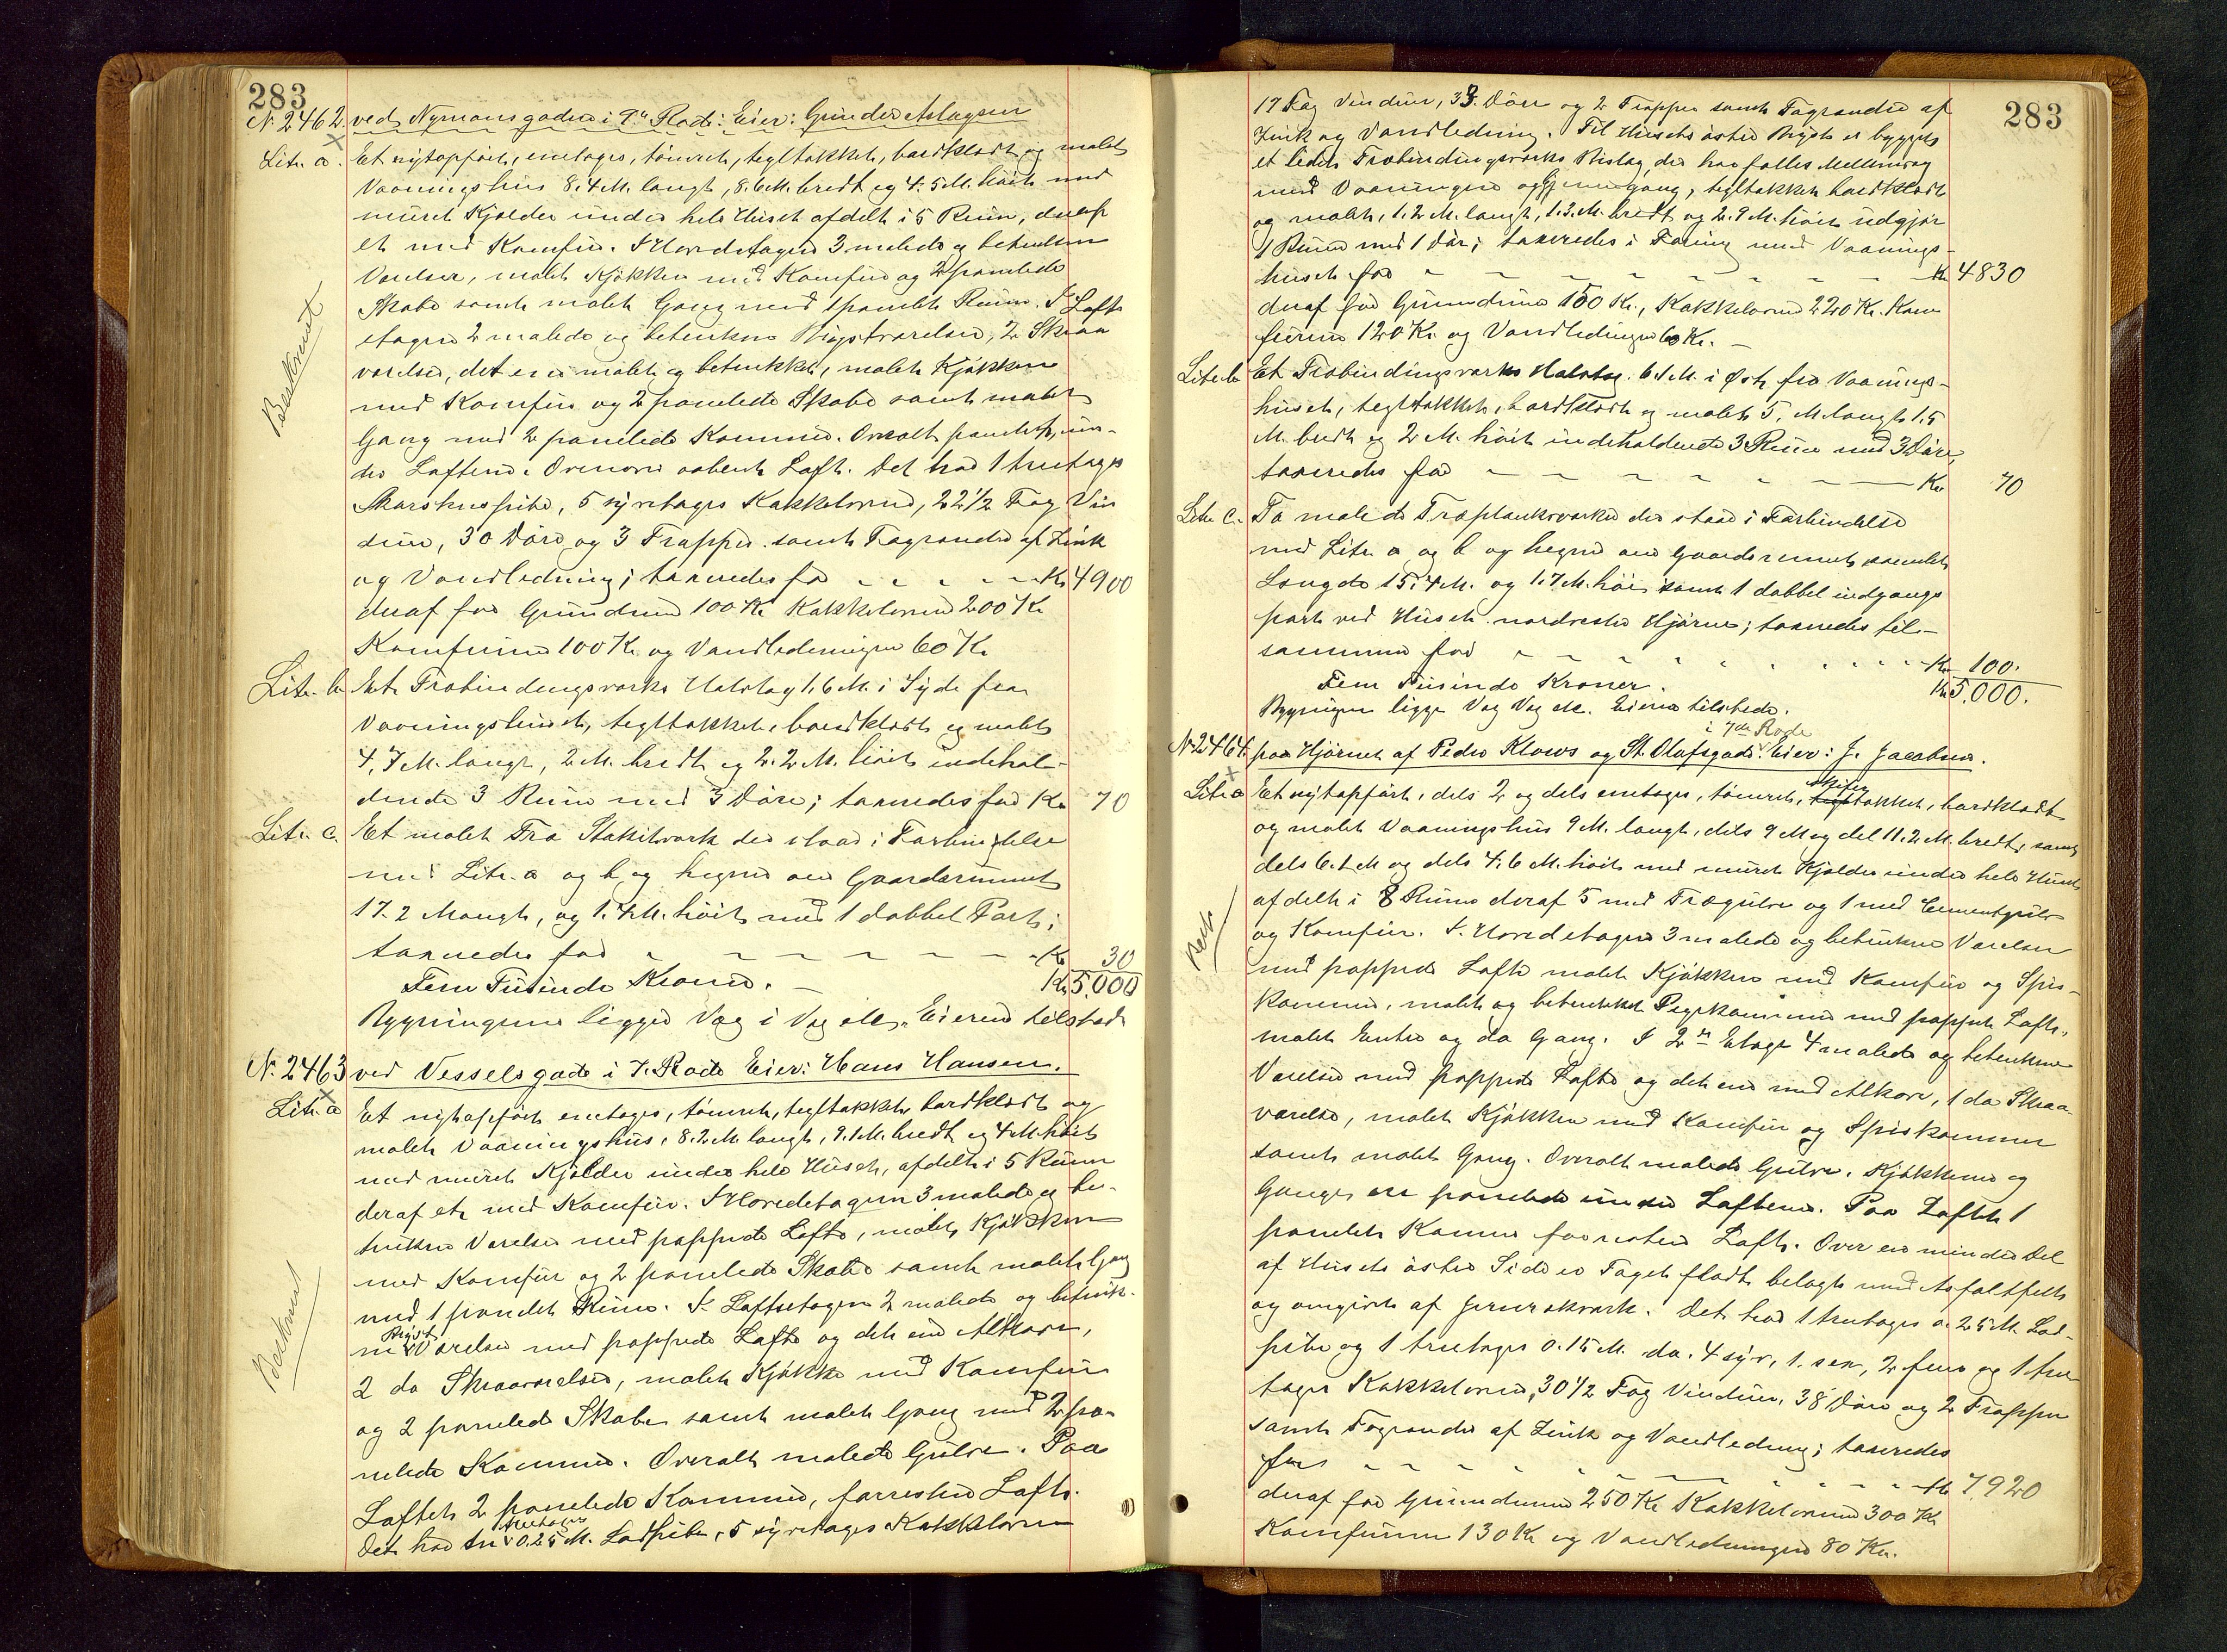 283
N. 2462. ved Nymansgaden i 7de Rode: Eier: Gunder Aslagsen
Litr. a. Et nytopført, enetages, tømret, tegltakket, bordklædt og malet
Vaaningshus 8.4 M. langt, 8.6 M. bredt og 4.5 M. høit med
muret Kjælder under hele Huset afdelt i 5 Rum, deraf
et med Komfur. I Hovedetagen 3 malede og betrukne
Værelser, malet Kjøkken med Komfur og 2 panelede
Skabe samt malet Gang med 1 panelet Rum. I Lofts
etagen 2 malede og betrukne Kvistværelser, 2 Skraa
værelser, det ene malet og betrukket, malet Kjøkken
med Komfur og 2 panelede Skabe samt malet
Gang med 2 panelede Kammer. Overalt panelet un-
der Loftene. Ovenover aabent Loft. Det har 1 tretages
Skorstenspibe, 5 syvetages Kakkelovne, 22 1/2 Fag Vin
duer, 30 Døre og 3 Trapper samt Tagrender af Zink
og Vandledning; taxeredes for - - - - - Kr 4900
deraf for Grunden 100 Kr Kakkelovne 200 Kr
Komfurene 100 Kr. og Vandledningen 60 Kr
Beskrevet
Litr. b Et Træbindingsværks Halvtag 1.6 M. i Syd fra
Vaaningshuset, tegltakket, bordklædt og malet
4.7 M. langt, 2 M. bredt og 2.2 M. høit indehol-
dende 3 Rum med 3 Døre; taxeredes for Kr 70
Litr. c. Et malet Træ Stakitværk der staar i Forbindelse
med Litr. a og b og hegner om Gaardsrummet
17.2 M langt, og 1.4 M. høit med 1 dobbel Port;
taxeredes for - - - - - - - Kr 30
Fem Tusinde Kroner. - Kr 5.000
Bygningerne ligger Væg i Væg etc. Eieren tilstede
N. 2463 ved Vesselsgade i 7. Rode Eier: Hans Hansen.
Litr. a Et nytopført enetages, tømret, tegltakket, bordklædt og
malet Vaaningshus, 8.2 M. langt, 9.1 M. bredt og 4 M. høit
med muret Kjælder under hele Huset, afdelt i 5 Rum
deraf et med Komfur. I Hovedetagen 3 malede og be-
trukne Værelser med pappede Lofte, malet Kjøkken
med Komfur og 2 panelede Skabe samt malet Gang
med 1 panelet Rum. I Loftsetagen 2 malede og betruk-
ne Kvist Værelser med pappede Lofte og det ene Alkove,
2 do Skraaværelser, malet Kjøkken med Komfur
og 2 panelede Skabe samt malet Gang med 2 pa-
nelede Kammer. Overalt malede Gulve. Paa
Loftet 2 panelede Kammer, forresten Loft.
Det har en tretages 0.25 M. Lodpibe, 5 syvetages Kakkelovne
Beskrevet
283
17 Fag Vinduer, 33. Døre og 2 Trapper samt Tagrender af
Zink og Vandledning. Til Husets østre Kvist er bygget
et lidet Træbindingsværks Bislag, der har fælles Mellemvæg
med Vaaningen og Gjennemgang, tegltakket bordklædt
og malet, 1.2 M. langt, 1.3 M. bredt og 2.9 M. høit udgjør
1 Rum med 1 Dør; taxeredes i Forening med Vaanings-
huset for - - - - - - - - - Kr 4830
deraf for Grunden 150 Kr., Kakkelovne 220 Kr. Kom
furene 120 Kr. og Vandledningen 60 Kr. -
Litr. b Et Træbindingsværks Halvtag 6.1 M. i Øst fra Vaanings-
huset, tegltakket, bordklædt og malet 5. M. langt 1.5
M. bredt og 2 M. høit indeholdende 3 Rum med 3 Døre,
taxeredes for - - - - - - - Kr 70
Litr. c. To malede Træplankeværker der staar i Forbindelse
med Litr. a og b og hegner om Gaardsrummet samlet
Længde 15.4 M. og 1.7 M. høi samt 1 dobbel indgangs
port ved Husets nordvestre Hjørne; taxeredes til-
sammen for - - - - - - - - Kr 100.
Fem Tusinde Kroner. Kr 5.000.
Bygningen ligge Væg Væg etc. Eieren tilstede.
i 7de Rode
N. 2464. paa Hjørnet af Peder Klows og St. Olafsgade. Eier: J. Jacobsen.
Litr. a Et nytopført, dels 2 og dels enetages, tømret, skifer takket, bordklædt
og malet Vaaningshus 9 M. langt, dels 9 M og del 11.2 M. bredt, samt
dels 6.1 M og dels 4.6 M. høit med muret Kjælder under hele Huset
afdelt i 8 Rum deraf 5 med Trægulve og 1 med Cementgulv
og Komfur. I Hovedetagen 3 malede og betrukne Værelser
med pappede Lofte malet Kjøkken med Komfur og Spis-
kammer, malet og betrukket Pigekammer med pappet Loft,
malet Entre og do Gang. I 2de Etage 4 malede og betrukne
Værelser med pappede Lofte og det ene med Alkove, 1 do Skraa-
værelse, malet Kjøkken med Komfur og Spiskammer
samt malet Gang. Overalt malede Gulve. Kjøkkene og
Gange er panelede under Loftene. Paa Loftet 1
panelet Kammer forresten Loft. Over en mindre Del
af Husets østre Side er Taget fladt belagt med Asfaltfilt
og omgivet af Jernrækværk. Det har 1 tretages a. 25 M. Lod-
pibe og 1 tretages 0.15 M. do. 4 syv, 1. sex, 2 fem og 1 tre-
tages Kakkelovne, 30 1/2 Fag Vinduer, 38 Døre og 2 Trapper
samt Tagrender af Zink og Vandledning; taxeredes
for - - - - - - - - - Kr 7.920
deraf for Grundmuren 250 Kr Kakkelovnene 300 Kr
Komfurene 130 Kr og Vandledningen 80 Kr.
Besk